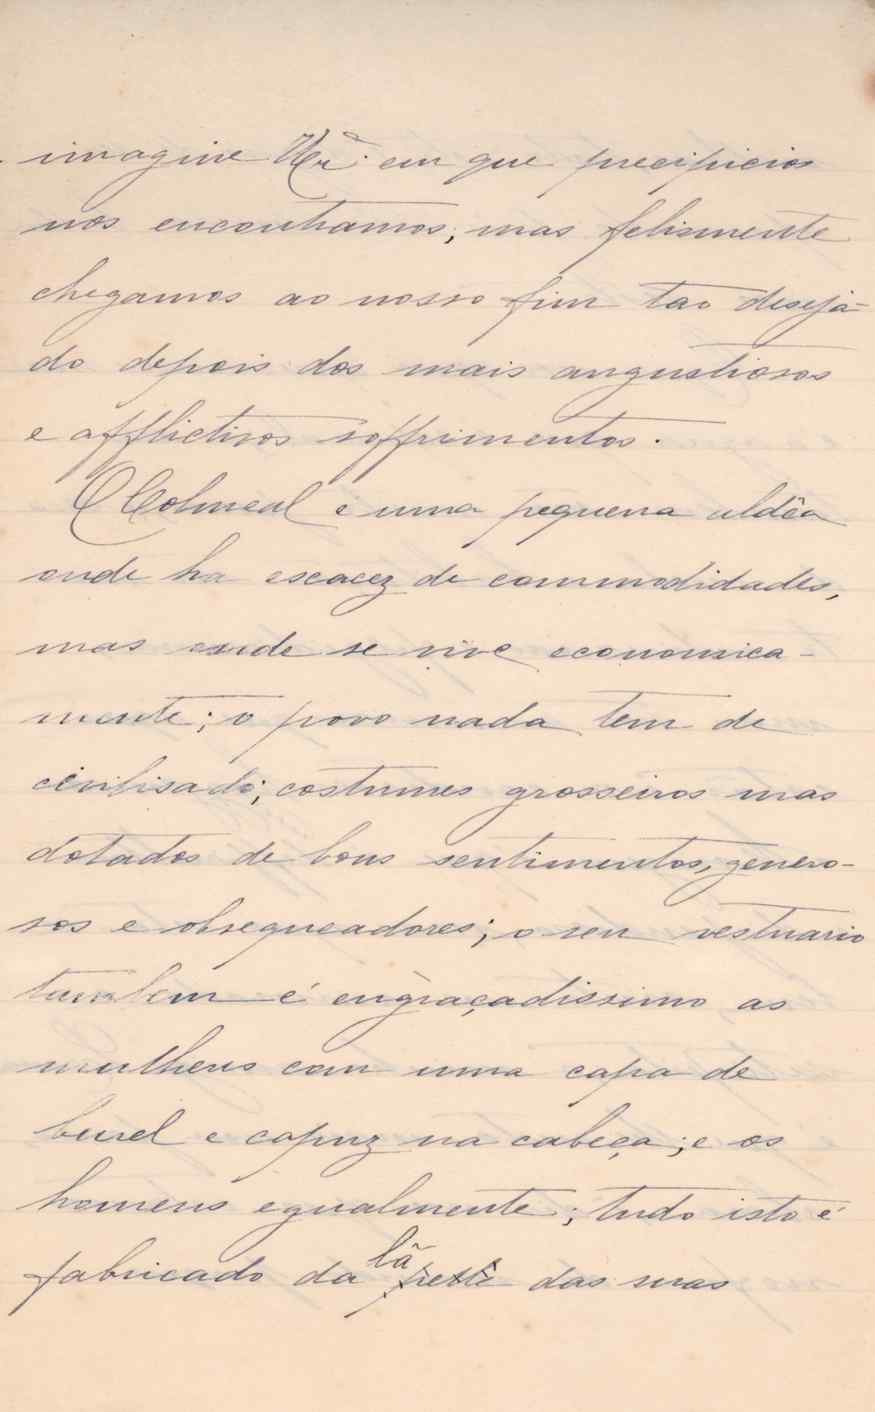 imagine V. Ex.ª em que precipicios
nos encontramos, mas felismente
chegamos ao nosso fim tao desejá-
do depois dos mais angustiosos
e afflictivos soffrimentos.
O Colmeal é uma pequena aldêa
onde ha escacez de commodidades,
mas onde se vive economica-
mente; o povo nada tem de
civilisado; costumes grosseiros mas
dotados de bons sentimentos, genero-
sos e obsequeadores; o seu vestuario
tambem é engraçadissimo as
mulheres com uma capa de
burel e capuz na cabeça; e os
homens egualmente; tudo isto é
fabricado da lã das suas